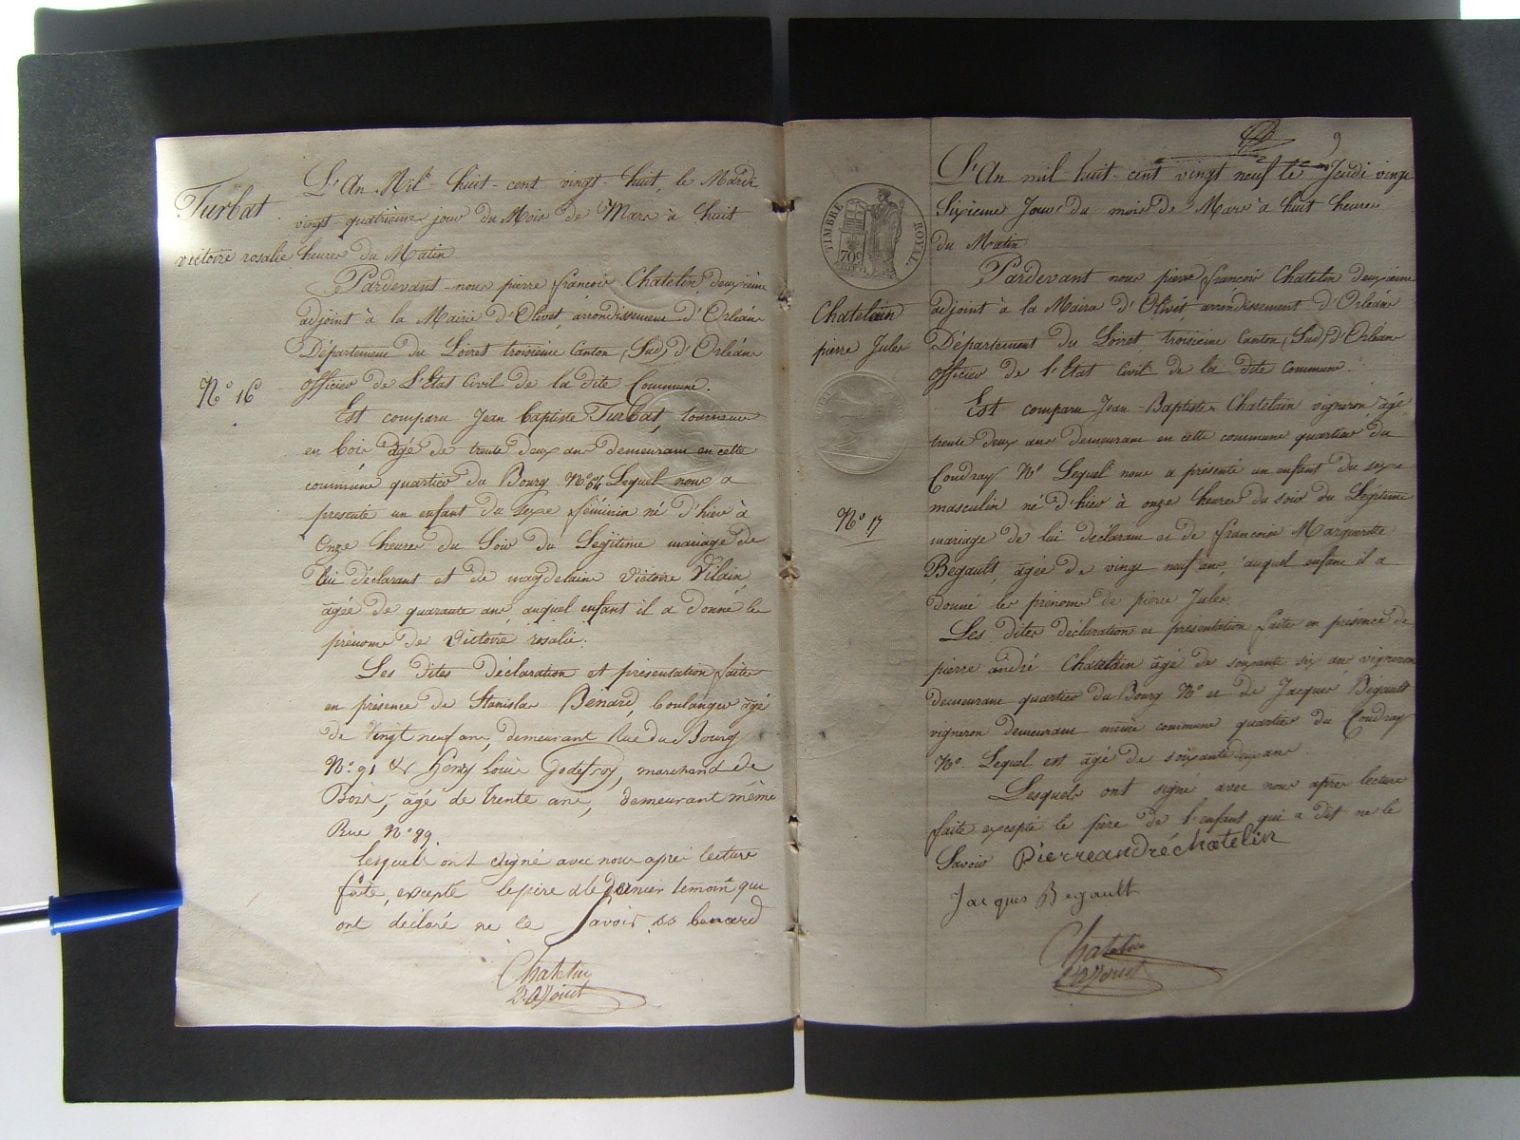 Turbat
victoire rosalie
N° 16
L'An Mil huit-cent vingt-huit, le Mardi
vingt quatrième jour du Mois de Mars à huit
heures du Matin
Pardevant nous pierre françois Chatelin deuxième
adjoint à la Mairie d'Olivet, arrondissement d'Orléans
Département du Loiret troisième Canton (Sud) d'Orléans
officier de L'Etat Civil de la dite Commune.
Est comparu Jean baptiste Turbat, tourneur
en bois âgé de trente deux ans demeurant en cette
commune quartier du Bourg N° Lequel nous a
presenté un enfant du Sexe féminin né d'hier à
Onze heures du Soir du Legitime mariage de
lui déclarant et de magdelaine Victoire Vilain
âgée de quarante ans, auquel enfant il a donné les
prénoms de Victoire rosalie.
Les dites déclaration et présentation faites
en présence de Stanislas Benard, boulanger âgé
de Vingt neuf ans, demeurant Rue du Bourg
N° 91 & henry Louis Godefroy, marchand de
Bois, âgé de trente ans, demeurant même
Rue N° 89.
lesquels ont signé avec nous après lecture
faite, excepté le père & le dernier témoin qui
ont déclaré ne le Savoir. benard
Chatelin
D. Ajouit
TIMBRE ROYAL.
70c
Chatelain
pierre Jules
N° 17
9
L'An mil huit-cent vingt neuf le Jeudi vingt
Sixieme Jour du mois de Mars à huit heures
du Matin
Pardevant nous pierre françois Chatelin deuxième
adjoint à la Mairie d'Olivet, arrondissement d'Orléans
Département du Loiret, troisieme Canton (Sud) d'Orléans
officier de l'Etat Civil de la dite Commune.
Est comparu Jean-Baptiste Chatelain vigneron, âgé
trente deux ans demeurant en cette commune quartier du
Coudray N° Lequel nous a présenté un enfant du sexe
masculin né d'hier à onze heures du soir du Légitime
mariage de lui déclarant et de françoise Margueritte
Begault, âgée de vingt neuf ans, auquel enfant il a
donné les prénoms de pierre Jules
Les dites déclaration et presentation faites en présence de
pierre andré Chatelain âgé de soixante six ans vigneron
demeurant quartier du Bourg N° et de Jacques Bégault
vigneron demeurant même commune quartier du Coudray
N°. Lequel est âgé de soixante deux ans.
Lesquels ont signé avec nous après lecture
faite excepté le père de l'enfant qui a dit ne le
Savoir Pierreandréchatelin
Jacques Begault
Chatelin